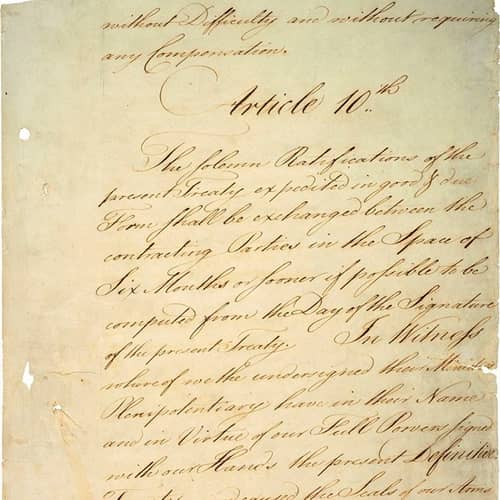 without Difficulty and without requiring
any Compensation.
Article 10.th
The solemn Ratifications of the
present Treaty expedited in good & due
Form shall be exchanged between the
contracting Parties in the Space of
Six Months or sooner if possible to be
computed from the Day of the Signature
of the present Treaty. In Witness
whereof we the undersigned their Ministers
Plenipotentiary have in their Name
and in Virtue of our Full Powers signed
with our Hands the present Definitive
Treaty, and caused the Seals of our Arms